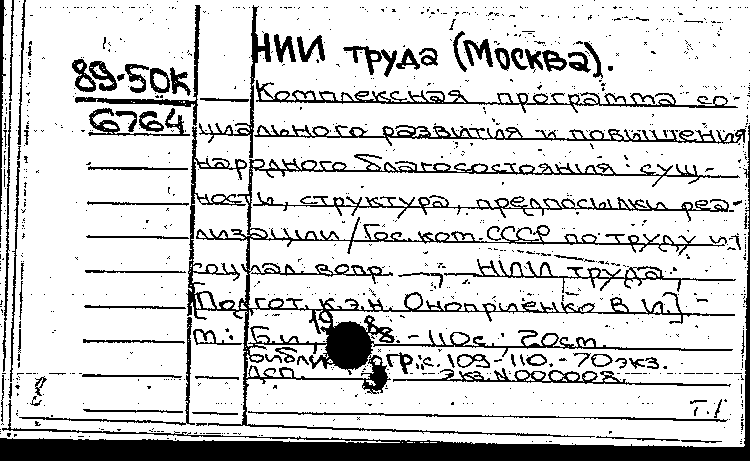 НИИ труда (Москва).
89-50К
6764
Комплексная программа со
циального развития и повышения
народного благосостояния : сущ-
ности, структура, предпосылки реа-
лизации / Гос. ком. СССР по труду и
социал. вопр. , НИИ труда ;
[Подгот. к.э.н. Оноприенко В.И.] -
М.: Б.и., 1988. - 110 с. ; 20 см.
Библиогр.: с. 109-110. - 70 экз.
ДСП. Экз. N 000008.
Т.1